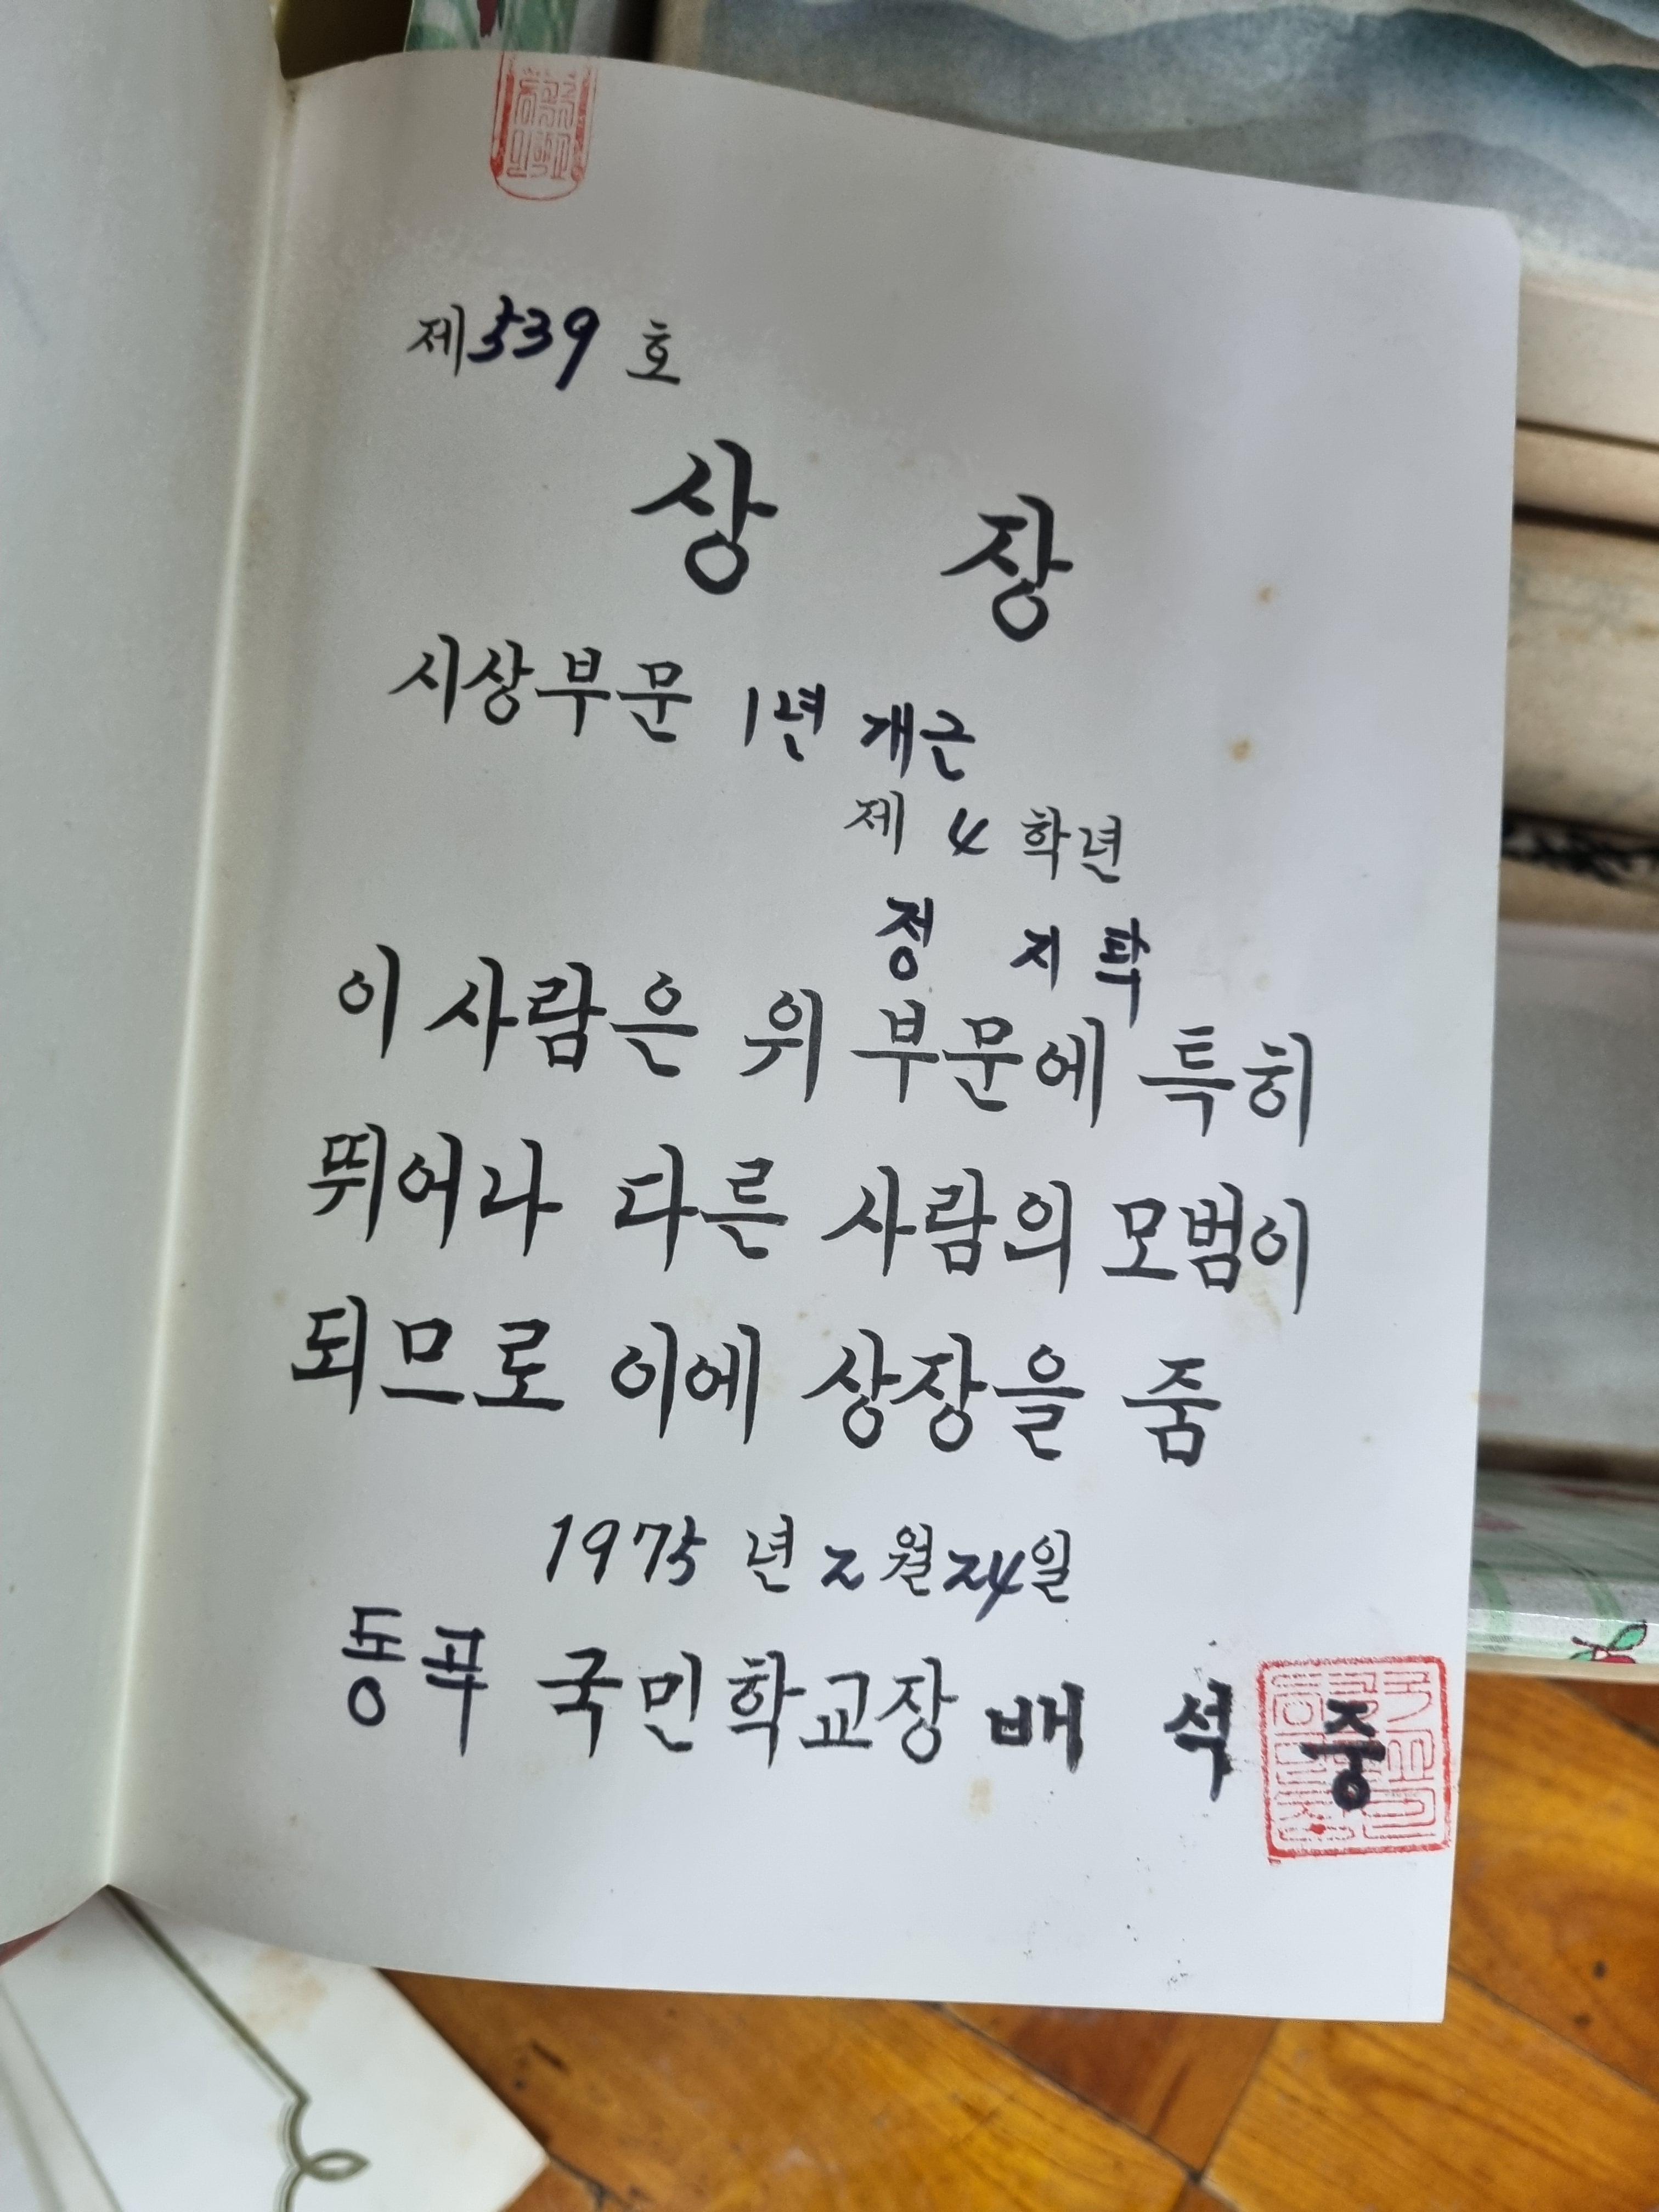 제539 호
상 장
시상부문 1년 개근
제 4 학년
정 지 탁
이 사람은 위 부문에 특히
뛰어나 다른 사람의 모범이
되므로 이에 상장을 줌
1975 년 2 월 24일
동곡 국민학교장 배 석 중